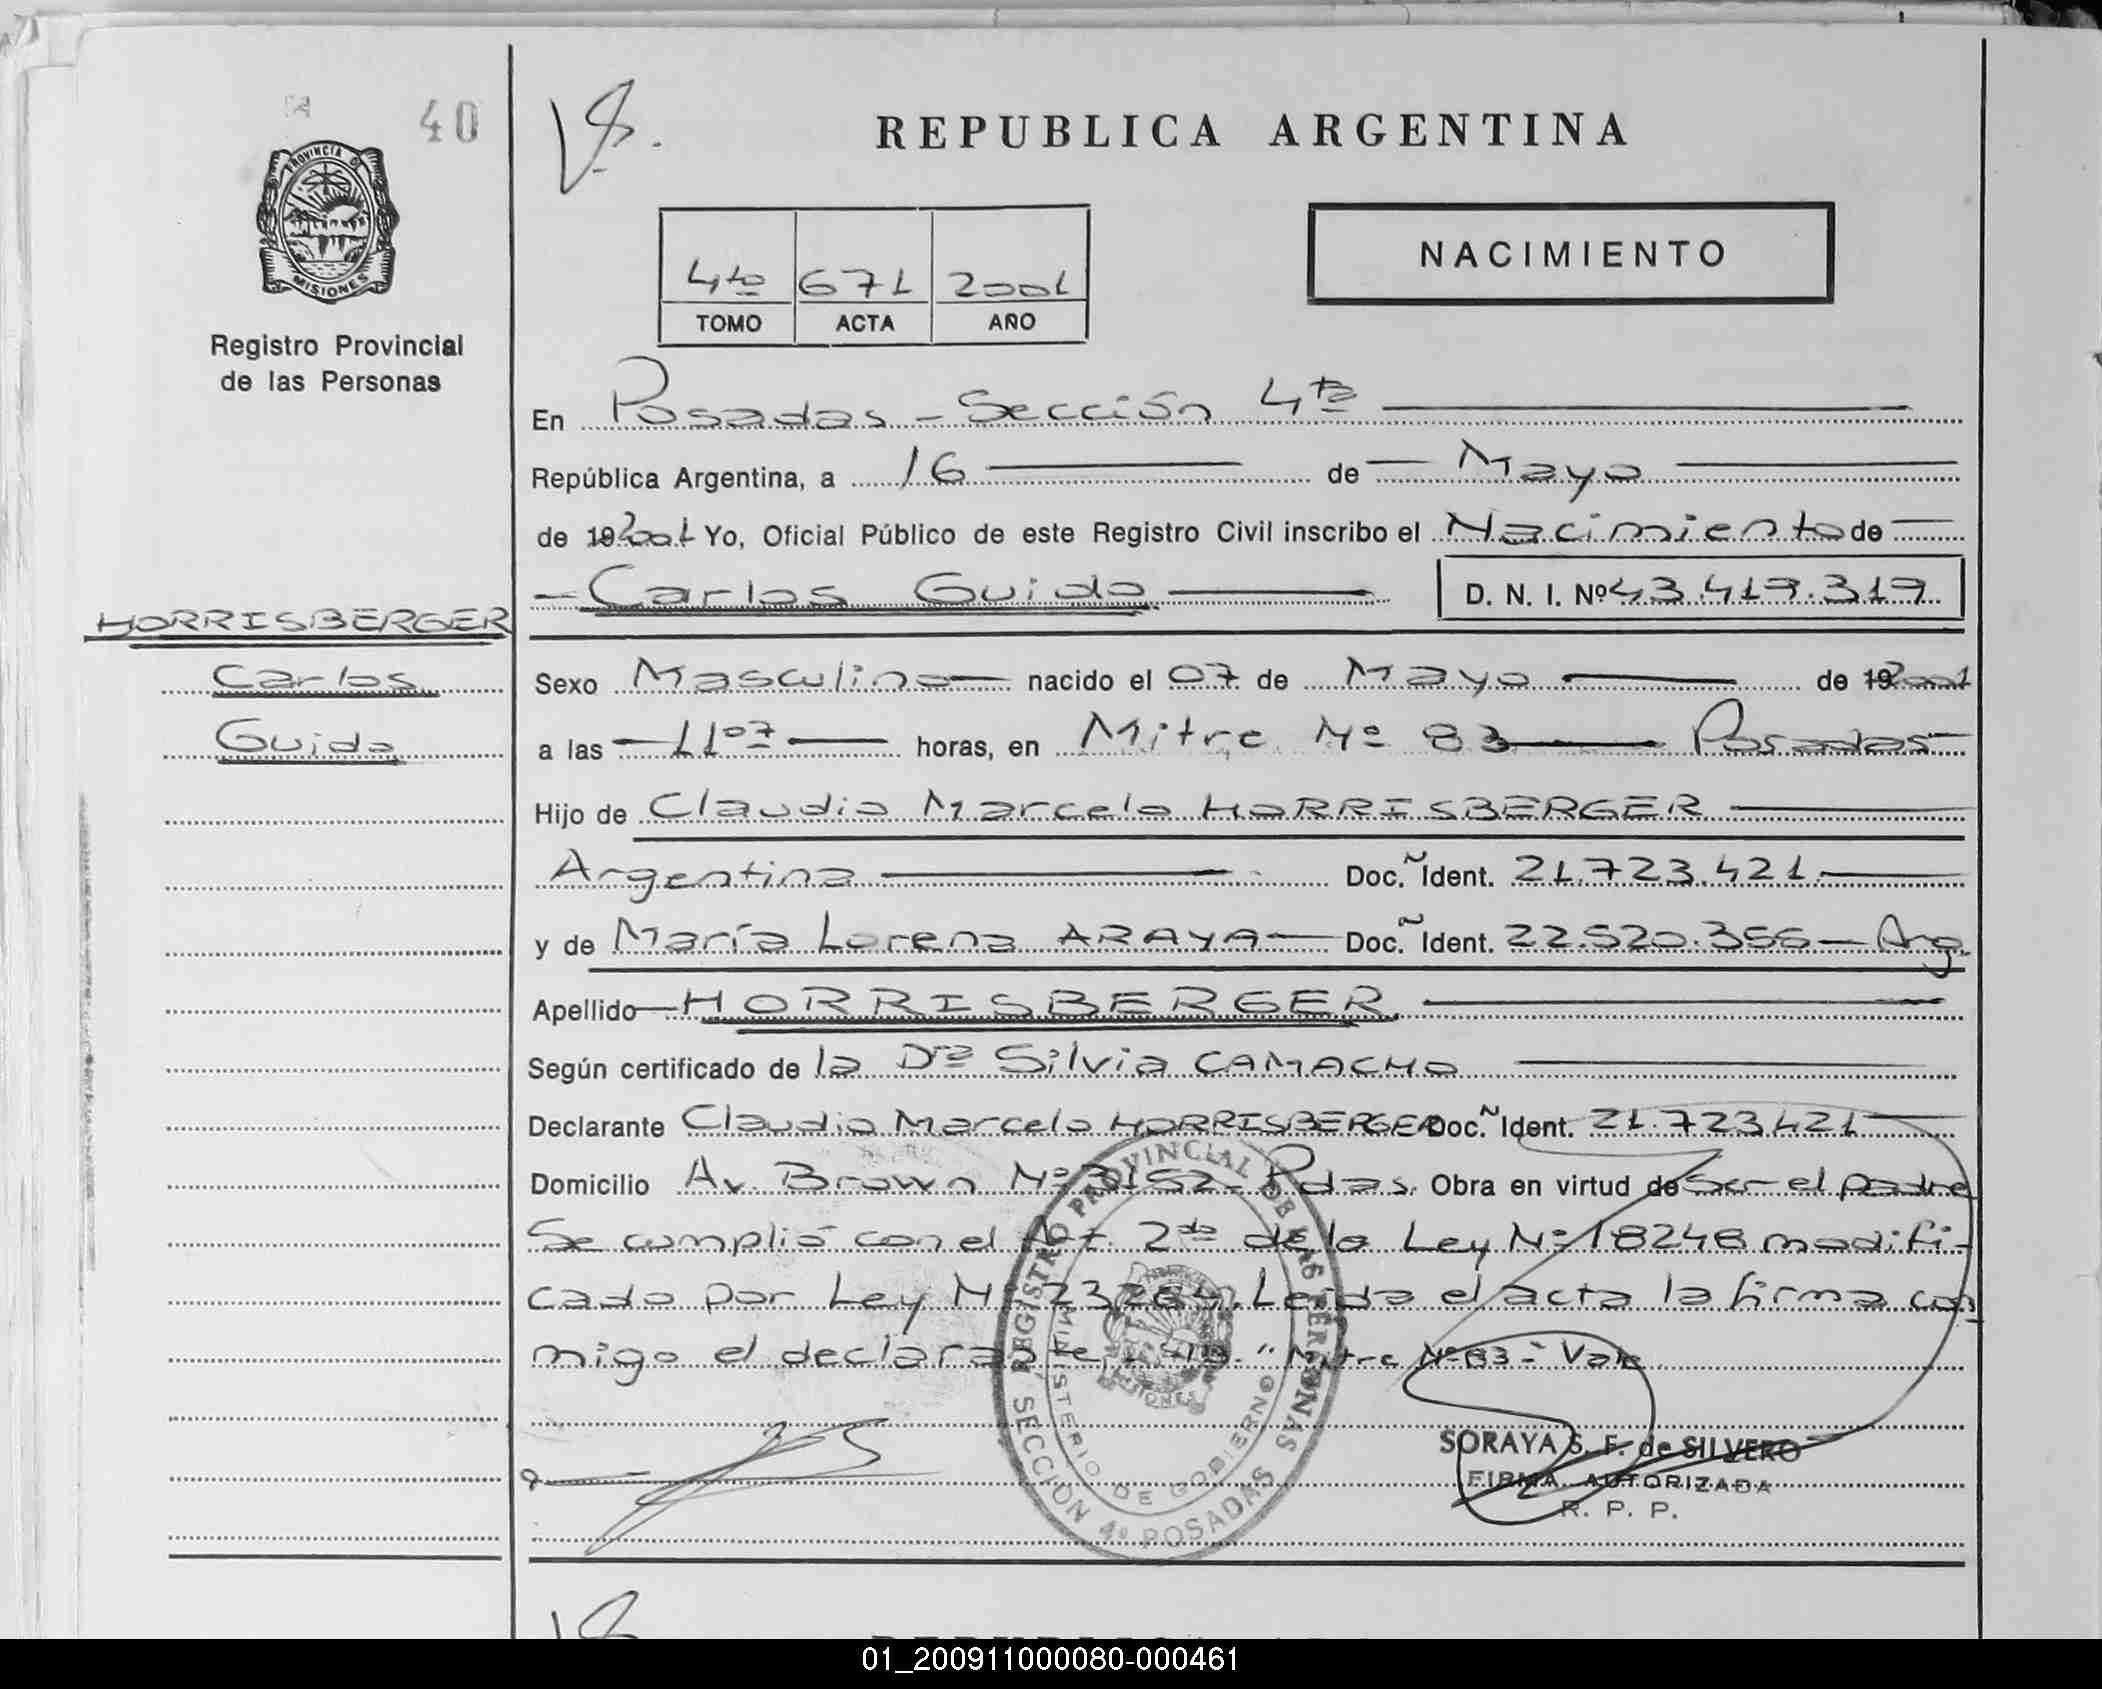 40
REPUBLICA ARGENTINA
PROVINCIA D
MISIONES
Registro Provincial
de las Personas
NACIMIENTO
4to 671 2001
TOMO ACTA AÑO
En Posadas - Sección 4ta
República Argentina, a 16 de Mayo
de 19 2001 Yo, Oficial Público de este Registro Civil inscribo el Nacimiento de
Carlos Guido D. N. I. Nº 43.419.319
HORRISBERGER
Carlos
Guido
Sexo Masculino nacido el 07 de Mayo de 19 2001
a las 11 07 horas, en Mitre Nº 83 Posadas
Hijo de Claudio Marcelo HORRISBERGER
Argentina Doc. Ident. 21.723.421
y de María Lorena ARAYA Doc. Ident. 22.520.356 - Arg.
Apellido HORRISBERGER
Según certificado de la Dra Silvia CAMACHO
Declarante Claudio Marcelo HORRISBERGER Doc. Ident. 21.723421
Domicilio Av. Brown Nº 3152 Pdas. Obra en virtud de Ser el padre
Se cumplió con el Art. 2do de la Ley Nº 18248 modifi-
cado por Ley Nº 23264. Leída el acta la firma con
migo el declarante. "Mitre Nº 83 - Vale
REGISTRO PROVINCIAL DE LAS PERSONAS
MINISTERIO DE GOBIERNO
SECCIÓN 4º POSADAS
SORAYA S. F. de SILVERO
FIRMA AUTORIZADA
R. P. P.
01_200911000080-000461